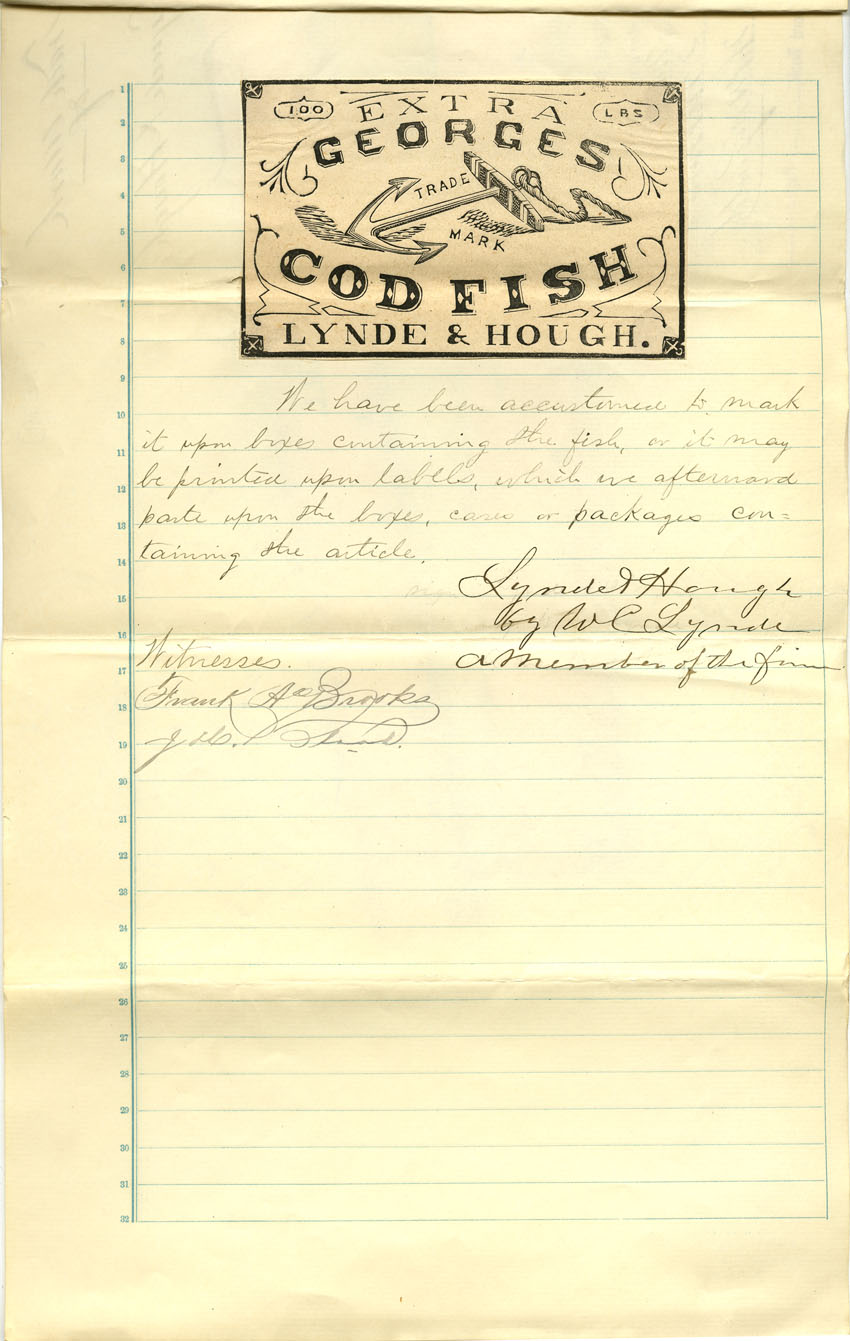 100 EXTRA LBS
GEORGES
TRADE
MARK
COD FISH
LYNDE & HOUGH.
1
2
3
4
5
6
7
8
9
We have been accustomed to mark
10
it upon boxes containing the fish, or it may
11
be printed upon labels, which we afterward
12
paste upon the boxes, cases or packages con=
13
taining the article.
14
Lynde & Hough
15
by W C Lynde
16
Witnesses. a member of the firm
17
Frank A Brooks
18
19
20
21
22
23
24
25
26
27
28
29
30
31
32